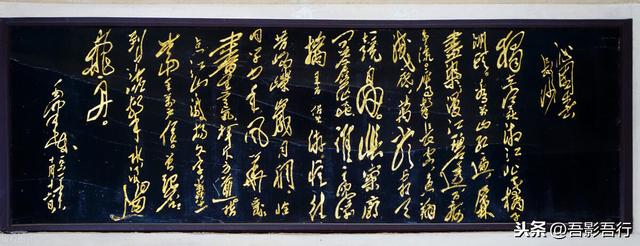 沁园春
长沙
独立寒秋湘江北去橘子
洲头看万山红遍层林
尽染漫江碧透百舸
争流鹰击长空鱼翔
浅底万类霜天
竞自由。怅寥廓
问苍茫大地谁主沉浮
携来百侣曾游忆往
昔峥嵘岁月稠恰
同学少年风华正茂
书生意气挥斥方遒指
点江山激扬文字粪土
当年万户侯曾记否
到中流击水浪遏
飞舟。
毛泽东
头条@吾影吾行